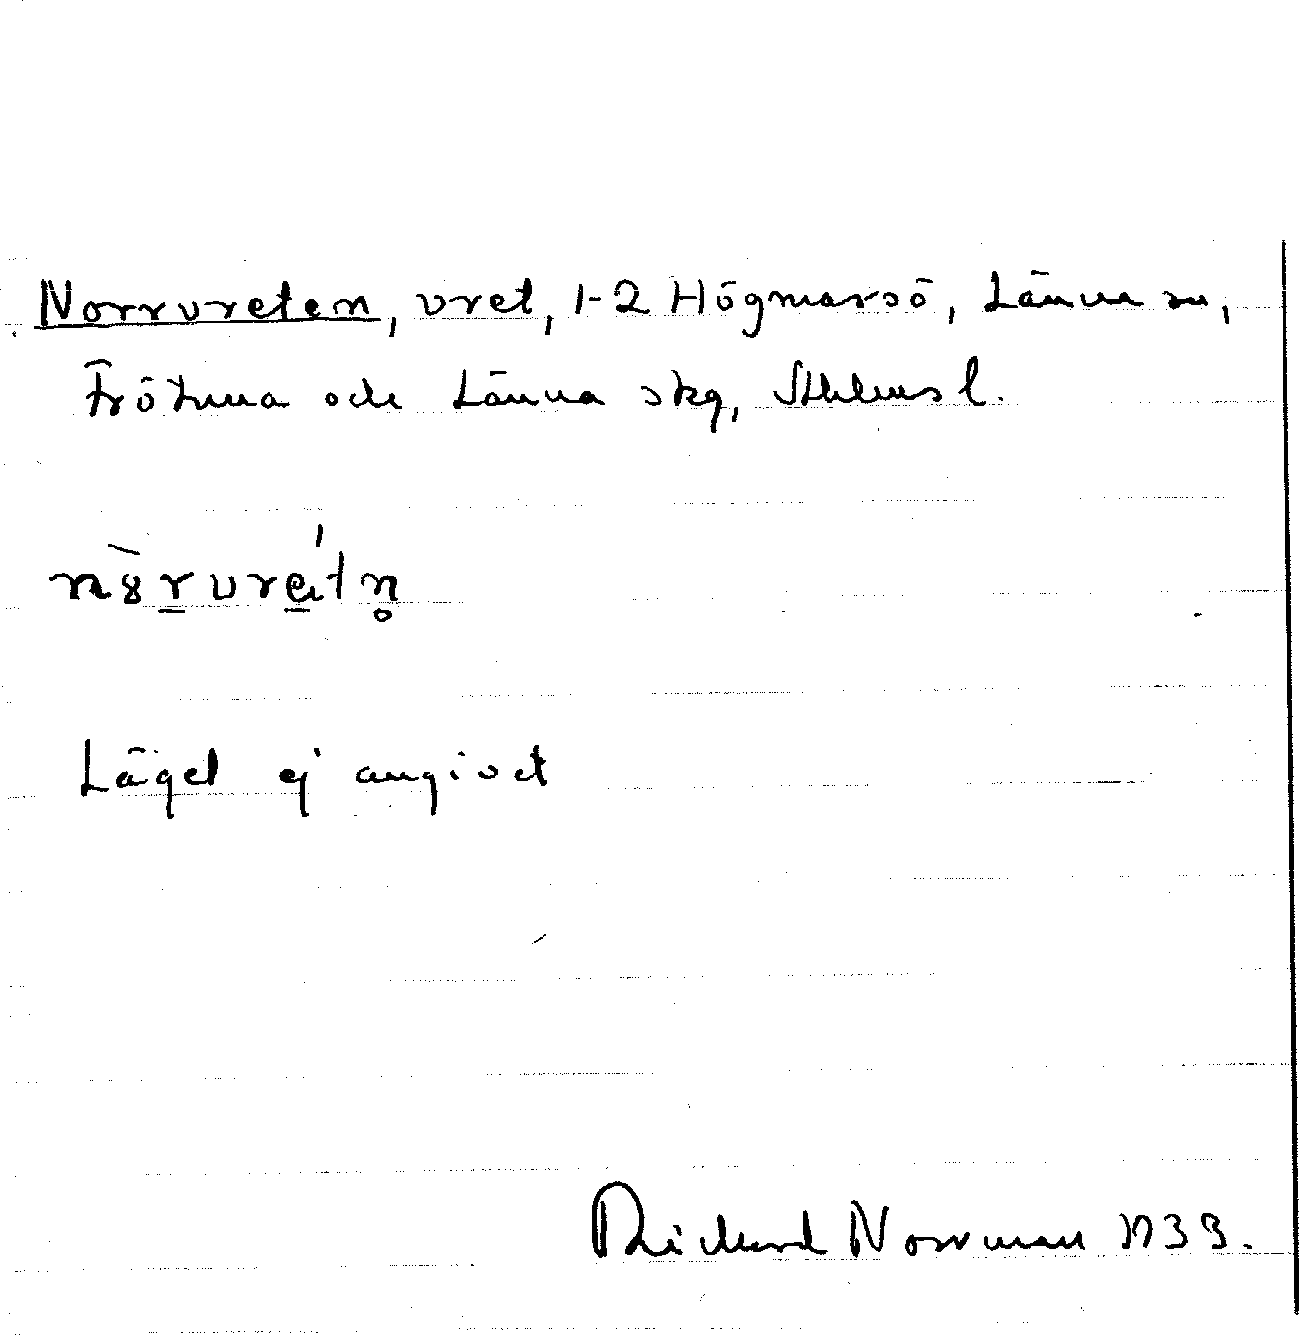 Norrvreten, vret, 1-2 Högmarsö, Länna sn,
Frötuna och Länna skg, Sthlms l.
Läget ej angivet
Rickard Norrman 1933.